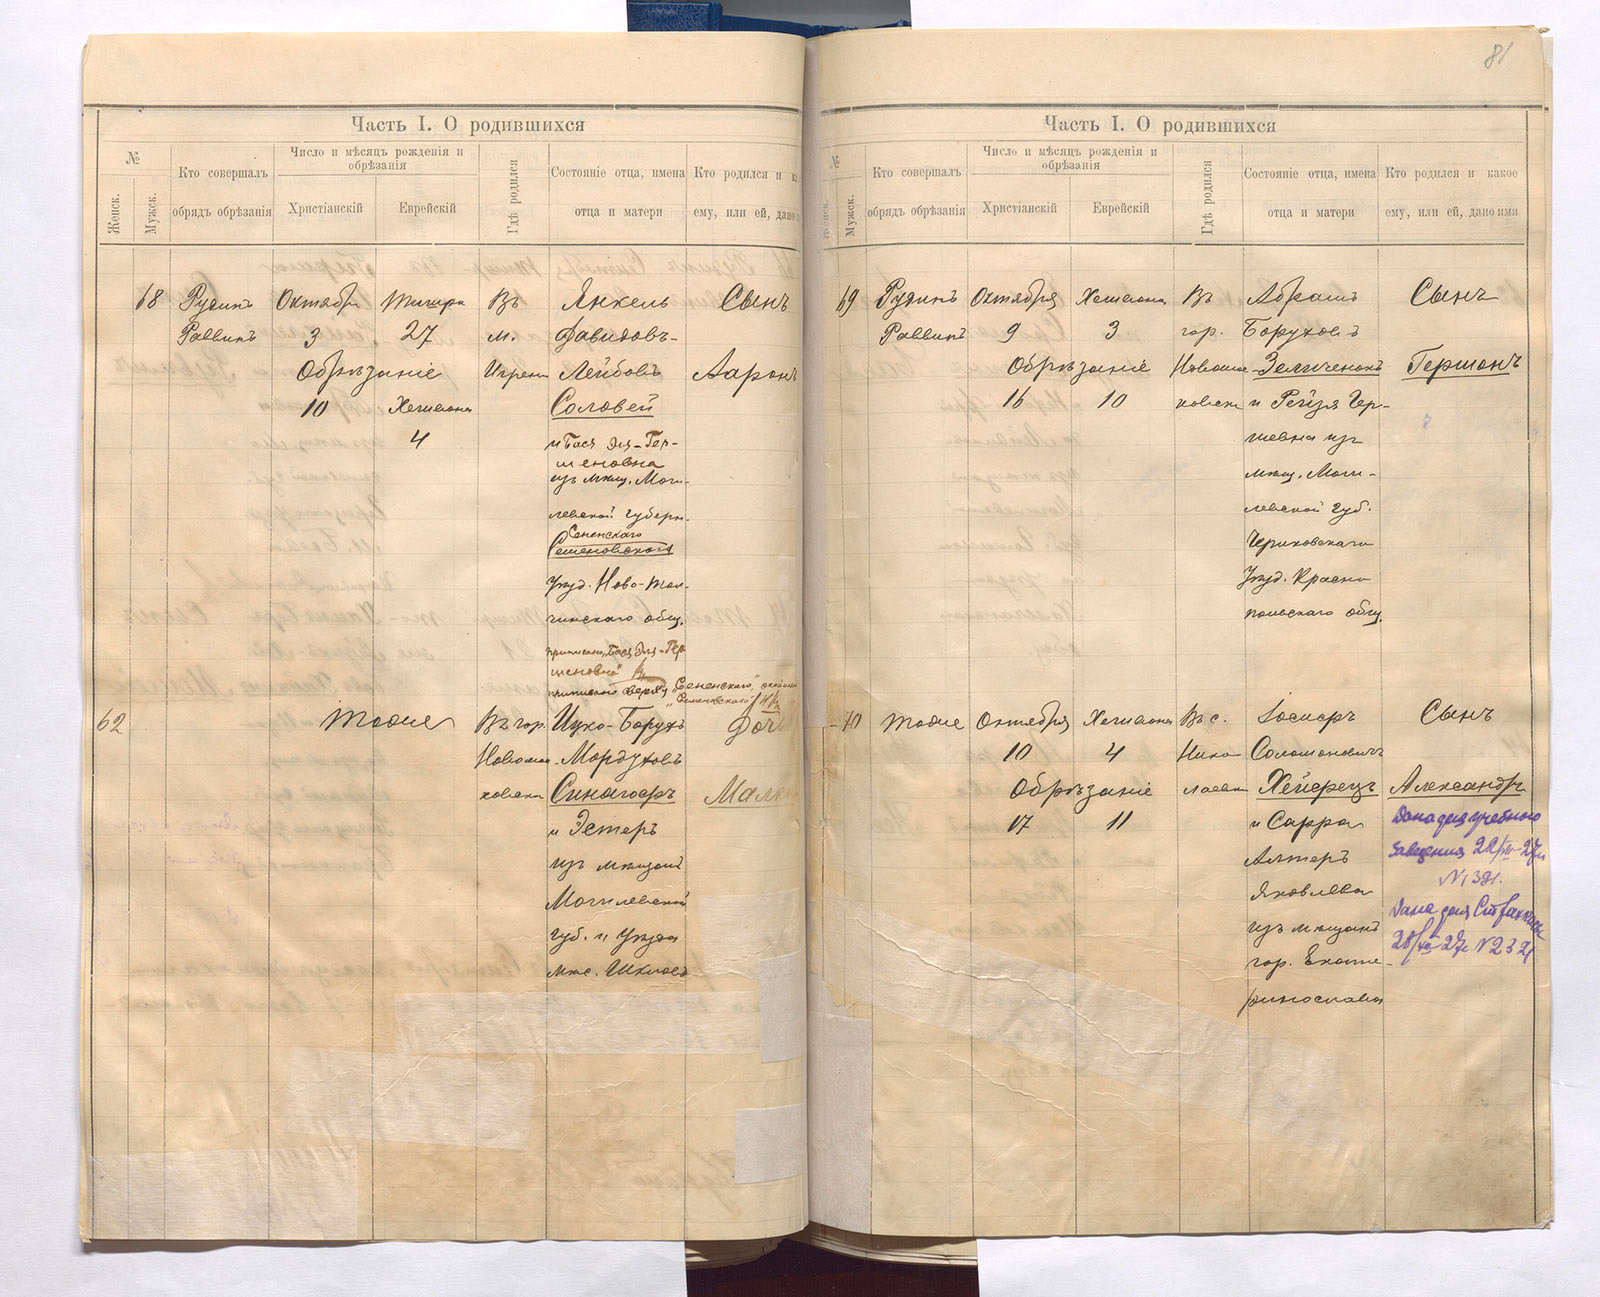 81
Часть I. О родившихся
№
Женск.
Мужск.
Кто совершалъ
обрядъ обрѣзанія
Число и мѣсяцъ рожденія и
обрѣзанія
Христіанскій
Еврейскій
Гдѣ родился
Состояніе отца, имена
отца и матери
Кто родился и
ему, или ей, дано
68
Рудинъ
Раввинъ
Октября
3
Тишри
27
Обрѣзаніе
10
Хешвана
4
Въ
м.
Игрени
Янкель
Давидовъ-
Лейбовъ
Соловей
и Бася Эля-Гер-
шеновна
изъ мѣщ. Моги-
левской губерн.
Сененскаго
Семеновскаго
Уѣзд. Ново-Тол-
чинскаго общ.
приписано „Бася Эля-Гер
шеновна"
приписано сверху „Сененскаго",
„Семеновскаго"
Сынъ
Ааронъ
62
Тоже
Въ гор.
Новомос-
ковскѣ
Ицко-Борухъ
Мордуховъ
Синагоеръ
и Эстеръ
изъ мѣщанъ
Могилевской
губ. и Уѣзда
мѣс. Шклова
Доч
Малк
Часть I. О родившихся
№
Женск.
Мужск.
Кто совершалъ
обрядъ обрѣзанія
Число и мѣсяцъ рожденія и
обрѣзанія
Христіанскій
Еврейскій
Гдѣ родился
Состояніе отца, имена
отца и матери
Кто родился и какое
ему, или ей, дано имя
69
Рудинъ
Раввинъ
Октября
9
Хешвана
3
Обрѣзаніе
16
10
Въ
гор.
Новомос-
ковскѣ
Абрамъ
Боруховъ
Зеличенокъ
и Рейзя Гер-
шевна изъ
мѣщ. Моги-
левской губ.
Чериковскаго
Уѣзд. Красно
польскаго общ.
Сынъ
Гершонъ
70
Тоже
Октября
10
Хешвана
4
Обрѣзаніе
17
11
Въ с.
Нико
лаевкѣ
Іосифъ
Соломоновичъ
Хейфецъ
и Сарра
Алтеръ
Яковлева
изъ мѣщанъ
гор. Екате-
ринослава
Сынъ
Александръ
Дана для учебного
заведения 22/VIII-27г
Дана для Страхкассы